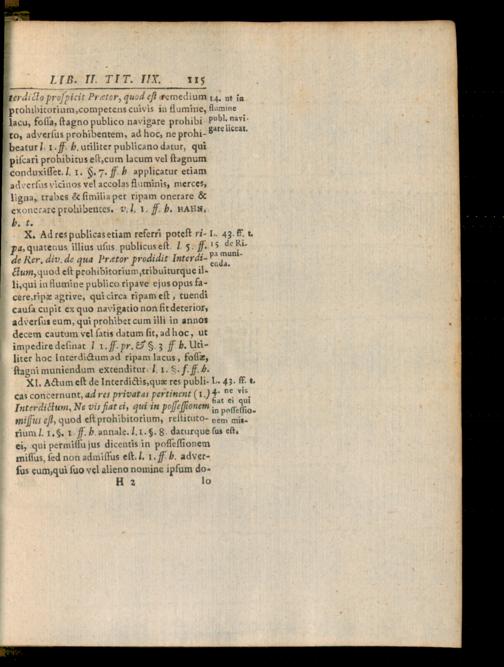 LIB. II. TIT. IIX. 115
terdicto prospicit Prætor, quod est remedium
prohibitorium, competens cuivis in flumine,
lacu, fossa, stagno publico navigare prohibi
to, adversus prohibentem, ad hoc, ne prohi-
beatur l. 1. ff. h. utiliter publicano datur, qui
piscari prohibitus est, cum lacum vel stagnum
conduxisset. l. 1. §. 7. ff h applicatur etiam
adversus vicinos vel accolas fluminis, merces,
ligna, trabes & similia per ripam onerare &
exonerare prohibentes. v. l. 1. ff. h. HAHN.
h. t.
14. ut in
flumine
publ. navi-
gare liceat.
X. Ad res publicas etiam referri potest ri-
pa, quatenus illius usus publicus est. l. 5. ff.
de Rer. div. de qua Prætor prodidit Interdi-
ctum, quod est prohibitorium, tribuiturque il-
li, qui in flumine publico ripave ejus opus fa-
cere, ripæ agrive, qui circa ripam est, tuendi
causa cupit ex quo navigatio non sit deterior,
adversus eum, qui prohibet cum illi in annos
decem cautum vel satis datum sit, ad hoc, ut
impedire desinat l 1. ff. pr. & §. 3 ff h. Uti-
liter hoc Interdictum ad ripam lacus, fossæ,
stagni muniendum extenditur. l. 1. §. f. ff. h.
L. 43. ff. t.
15 de Ri-
pa muni-
enda.
XI. Actum est de Interdictis, quæ res publi-
cas concernunt, ad res privatas pertinent (1.)
Interdictum, Ne vis fiat ei, qui in possessionem
missus est, quod est prohibitorium, restituto-
rium l. 1. §. 1. ff. h. annale. l. 1. §. 8. daturque
ei, qui permissu jus dicentis in possessionem
missus, sed non admissus est. l. 1. ff. h. adver-
sus eum, qui suo vel alieno nomine ipsum do-
L. 43. ff. t.
4. ne vis
fiat ei qui
in possessio-
nem mis-
sus est.
H 2 lo